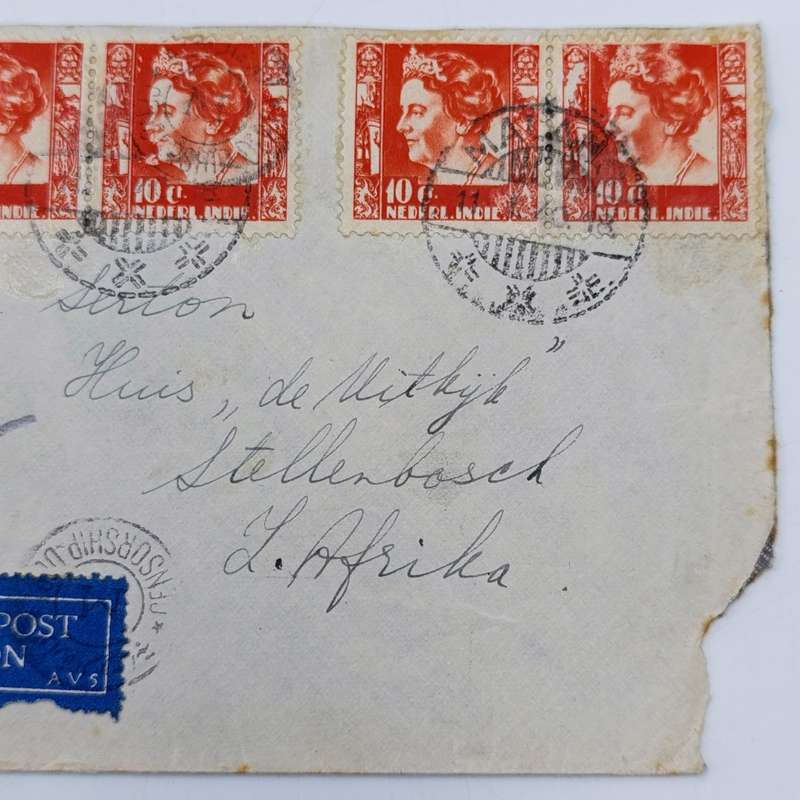 10 ct.
NEDERL. INDIE
10 ct.
NEDERL. INDIE
10 ct.
NEDERL. INDIE
11
Huis „de Uitkijk”
Stellenbosch
Z. Afrika.
CENSORSHIP
POST
ON
AVS